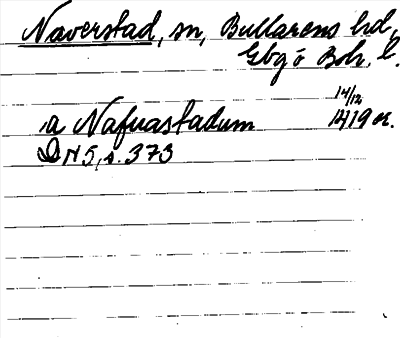 Naverstad, sn, Bullarens hd,
Gbg o Boh. l.
a Nafnastadum 14/12 1419 or.
DN 5, s. 373